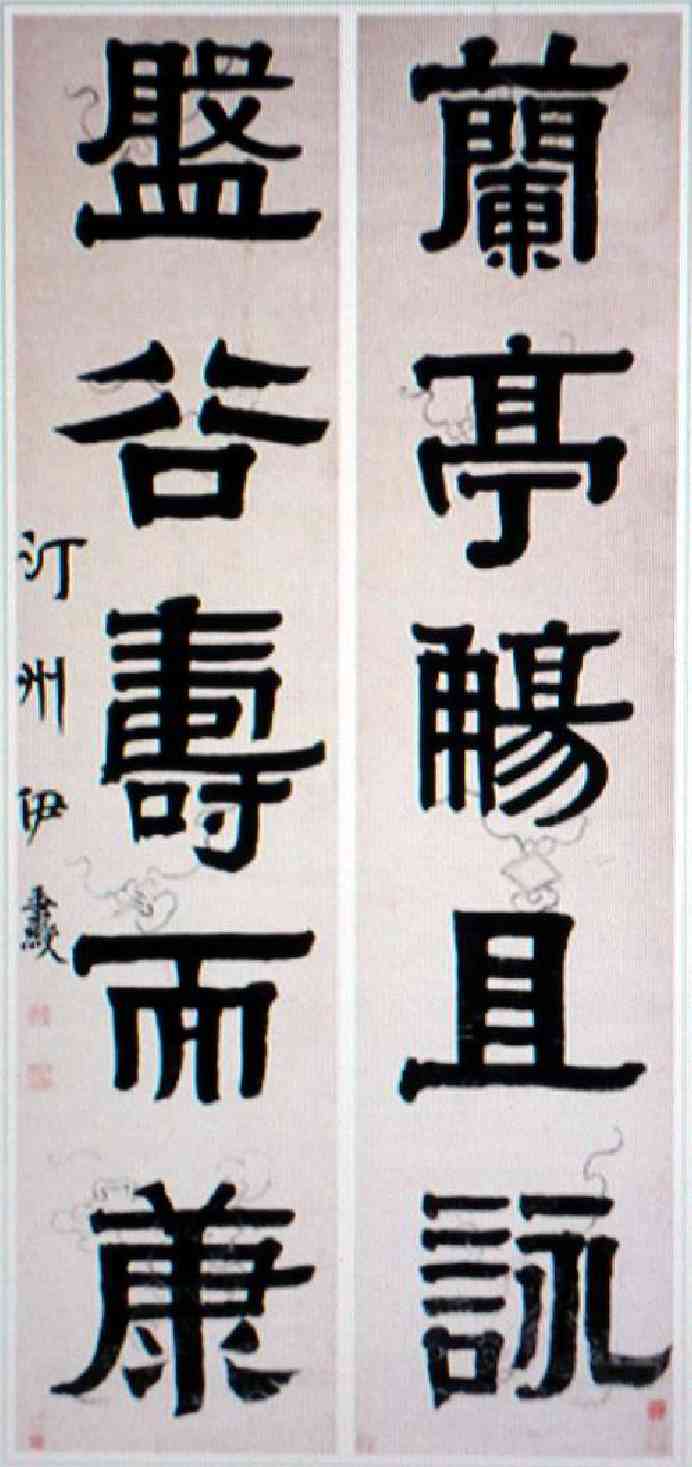 蘭亭觴且詠
盤谷壽而康
汀州伊秉綬